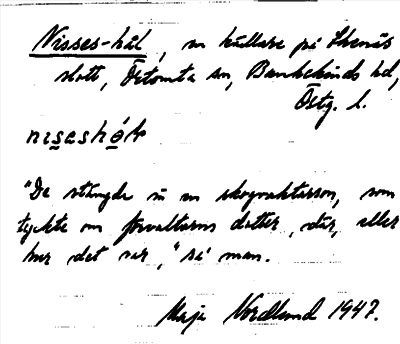 Nisses-hål, en källare på Ekenäs
slott, Örtomta sn, Bankekinds hd,
Östg. l.
nisashół
"De stängde in en skogvaktarson, som
tyckte om förvaltarens dotter, där, eller
hur det var," sa' man.
Maja Nordlund 1947.